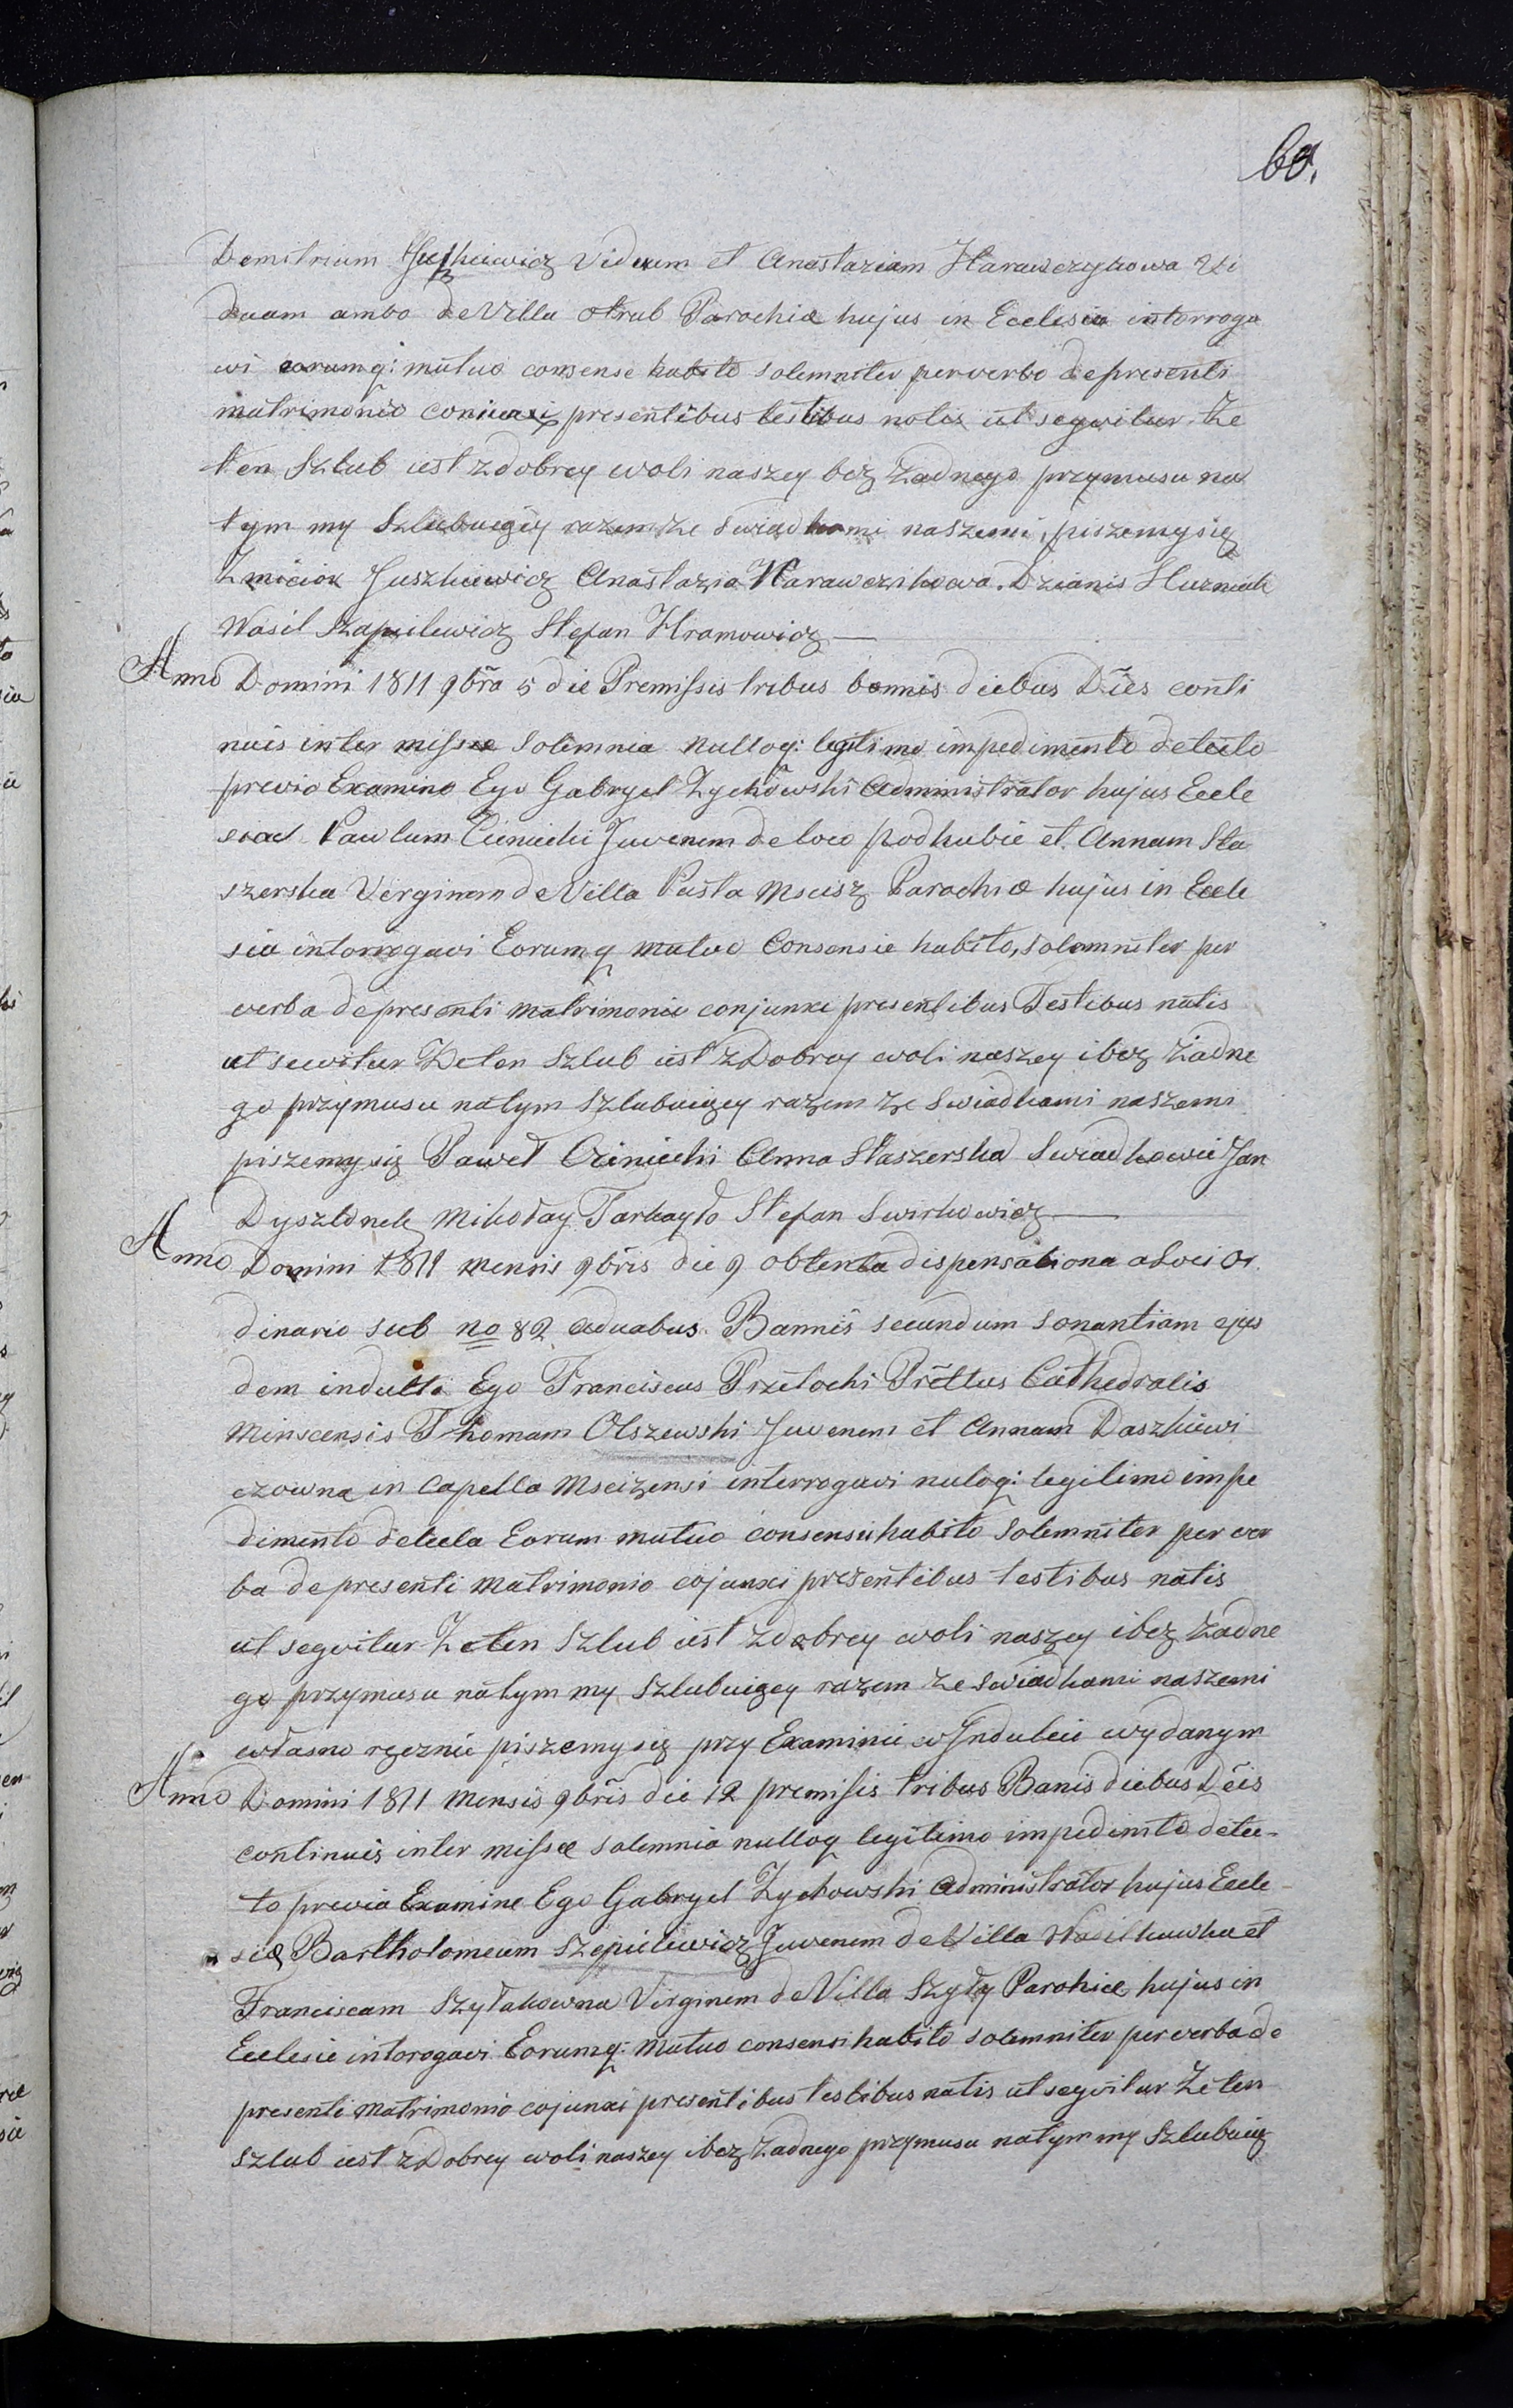 60.
Demitrium Juszkiewicz Viduum et Anastaziam Harawczykowa Vi
duam ambo de Villa otrub Parochiæ hujus in Ecclesia intorroga
wi eorumq: mutuo consense habito solemniter perverba depresenti
matrimonio coniunxi presentibus testibus notis ut segwitur. Że
ten Szlub iest zdobrey woli naszey bez Żadnego przymusu na
tym my Szlubuięcy razem ze swiadkami naszemi, piszemy się
Zmicior Juszkiewicz Anastazia Harawczikowa. Dzianis Kuzmicki
Wasil Szapilewicz Stefan Hramowicz —
Anno Domini 1811 9bra 5 die Premissis tribus bannis diebus Dies conti
nuis inter missæ Solemnia nulloq: legitimo impedimento detecto
previo Examino Ego Gabryel Zychowski Administrator hujus Eccle
siae Pawlum Cieniecki Juvenem de loco podhubie et Annam Sta
szerska Verginem de Villa Pusta Mscisz Parochiæ hujus in Eccle
sia intorrogavi Eorumq mutuo Consensie habito, solemniter per
verba depresenti matrimonio conjunxi presentibus Testibus natis
ut sewitur Że ten Szlub iest zDobrey woli naszey ibez Żadne
go przymusu natym Szlubuięcy razem ze swiadkami naszemi
piszemy się Paweł Ciniecki Anna Staszerska Swiadkowie Jan
Dyszlonek Mikołay Tarkayło Stefan Swirkowicz —
Anno Domini 1811 mensis 9bris die 9 obtenta dispensationa aLoci Or
dinario sub no 82 aduabus Bannis secundum sonantiam ejus
dem indulti Ego Franciscus Przełocki Prēttus Cathedralis
Minscensis Thomam Olszewski Juvenem et Annam Daszkiewi
czowna in Capella Mscizensi interrogavi nuloq: legitimo impe
dimento detecta Eorum mutuo consensu habito Solemniter per ver
ba depresenti matrimonio cojunxi presentibus testibus natis
ut segvitur Że ten Szlub iest zdobrey woli naszey ibez Żadne
go przymusu natym my Szlubuięcy razem ze swiadkami naszemi
własno ręcznie piszemy się przy Examinie w Indulcie wydanym
Anno Domini 1811 Mensis 9bris die 12 premisis tribus Banis diebus Dēis
continuis inter missæ solemnia nulloq legitimo impedimto detec-
to previa Examine Ego Gabryel Zychowski Administrator hujus Eccle-
siæ Bartholomeum Szepielewicz Juvenem de Villa Wasilkowka et
Franciscam Szyłakowna Virginem de Villa Szyły Parohiæ hujus in
Ecclesie intorogavi Eorumq: Mutuo consensi habito solemniter perverba de
presenti Matrimonio cojunxi presentibus testibus natis ut segvitur Że ten
szlub iest zDobrey woli naszey ibez Żadnego przymusu natym my Szlubuię